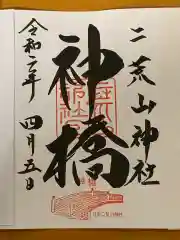 二荒山神社
神橋
令和二年四月五日